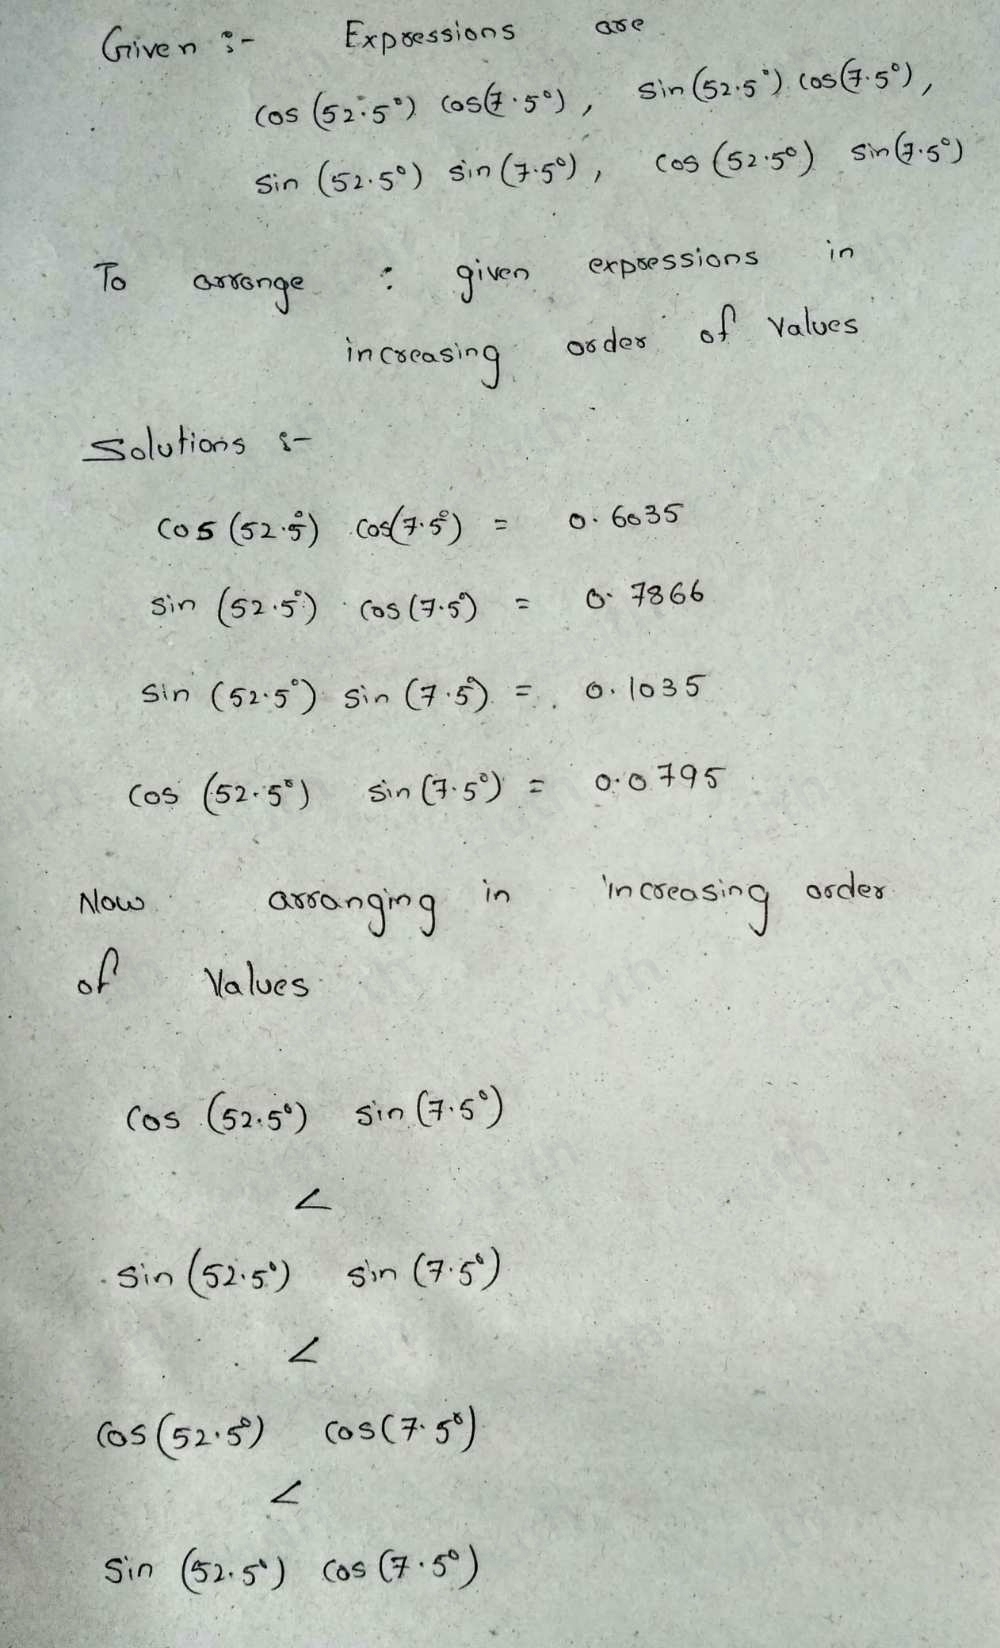 Given :- Expressions are
cos (52.5°) cos(7.5°), sin (52.5°) cos(7.5°),
sin (52.5°) sin (7.5°), cos (52.5°) sin(7.5°)
To arrange : given expressions in
increasing order of values
Solutions :-
cos (52.5°) cos(7.5°) = 0.6035
sin (52.5°) cos (7.5°) = 0.7866
sin (52.5°) sin (7.5°) = 0.1035
cos (52.5°) sin (7.5°) = 0.0795
Now arranging in increasing order
of Values
cos (52.5°) sin (7.5°)
<
sin (52.5°) sin (7.5°)
<
cos (52.5°) cos (7.5°)
<
sin (52.5°) cos (7.5°)